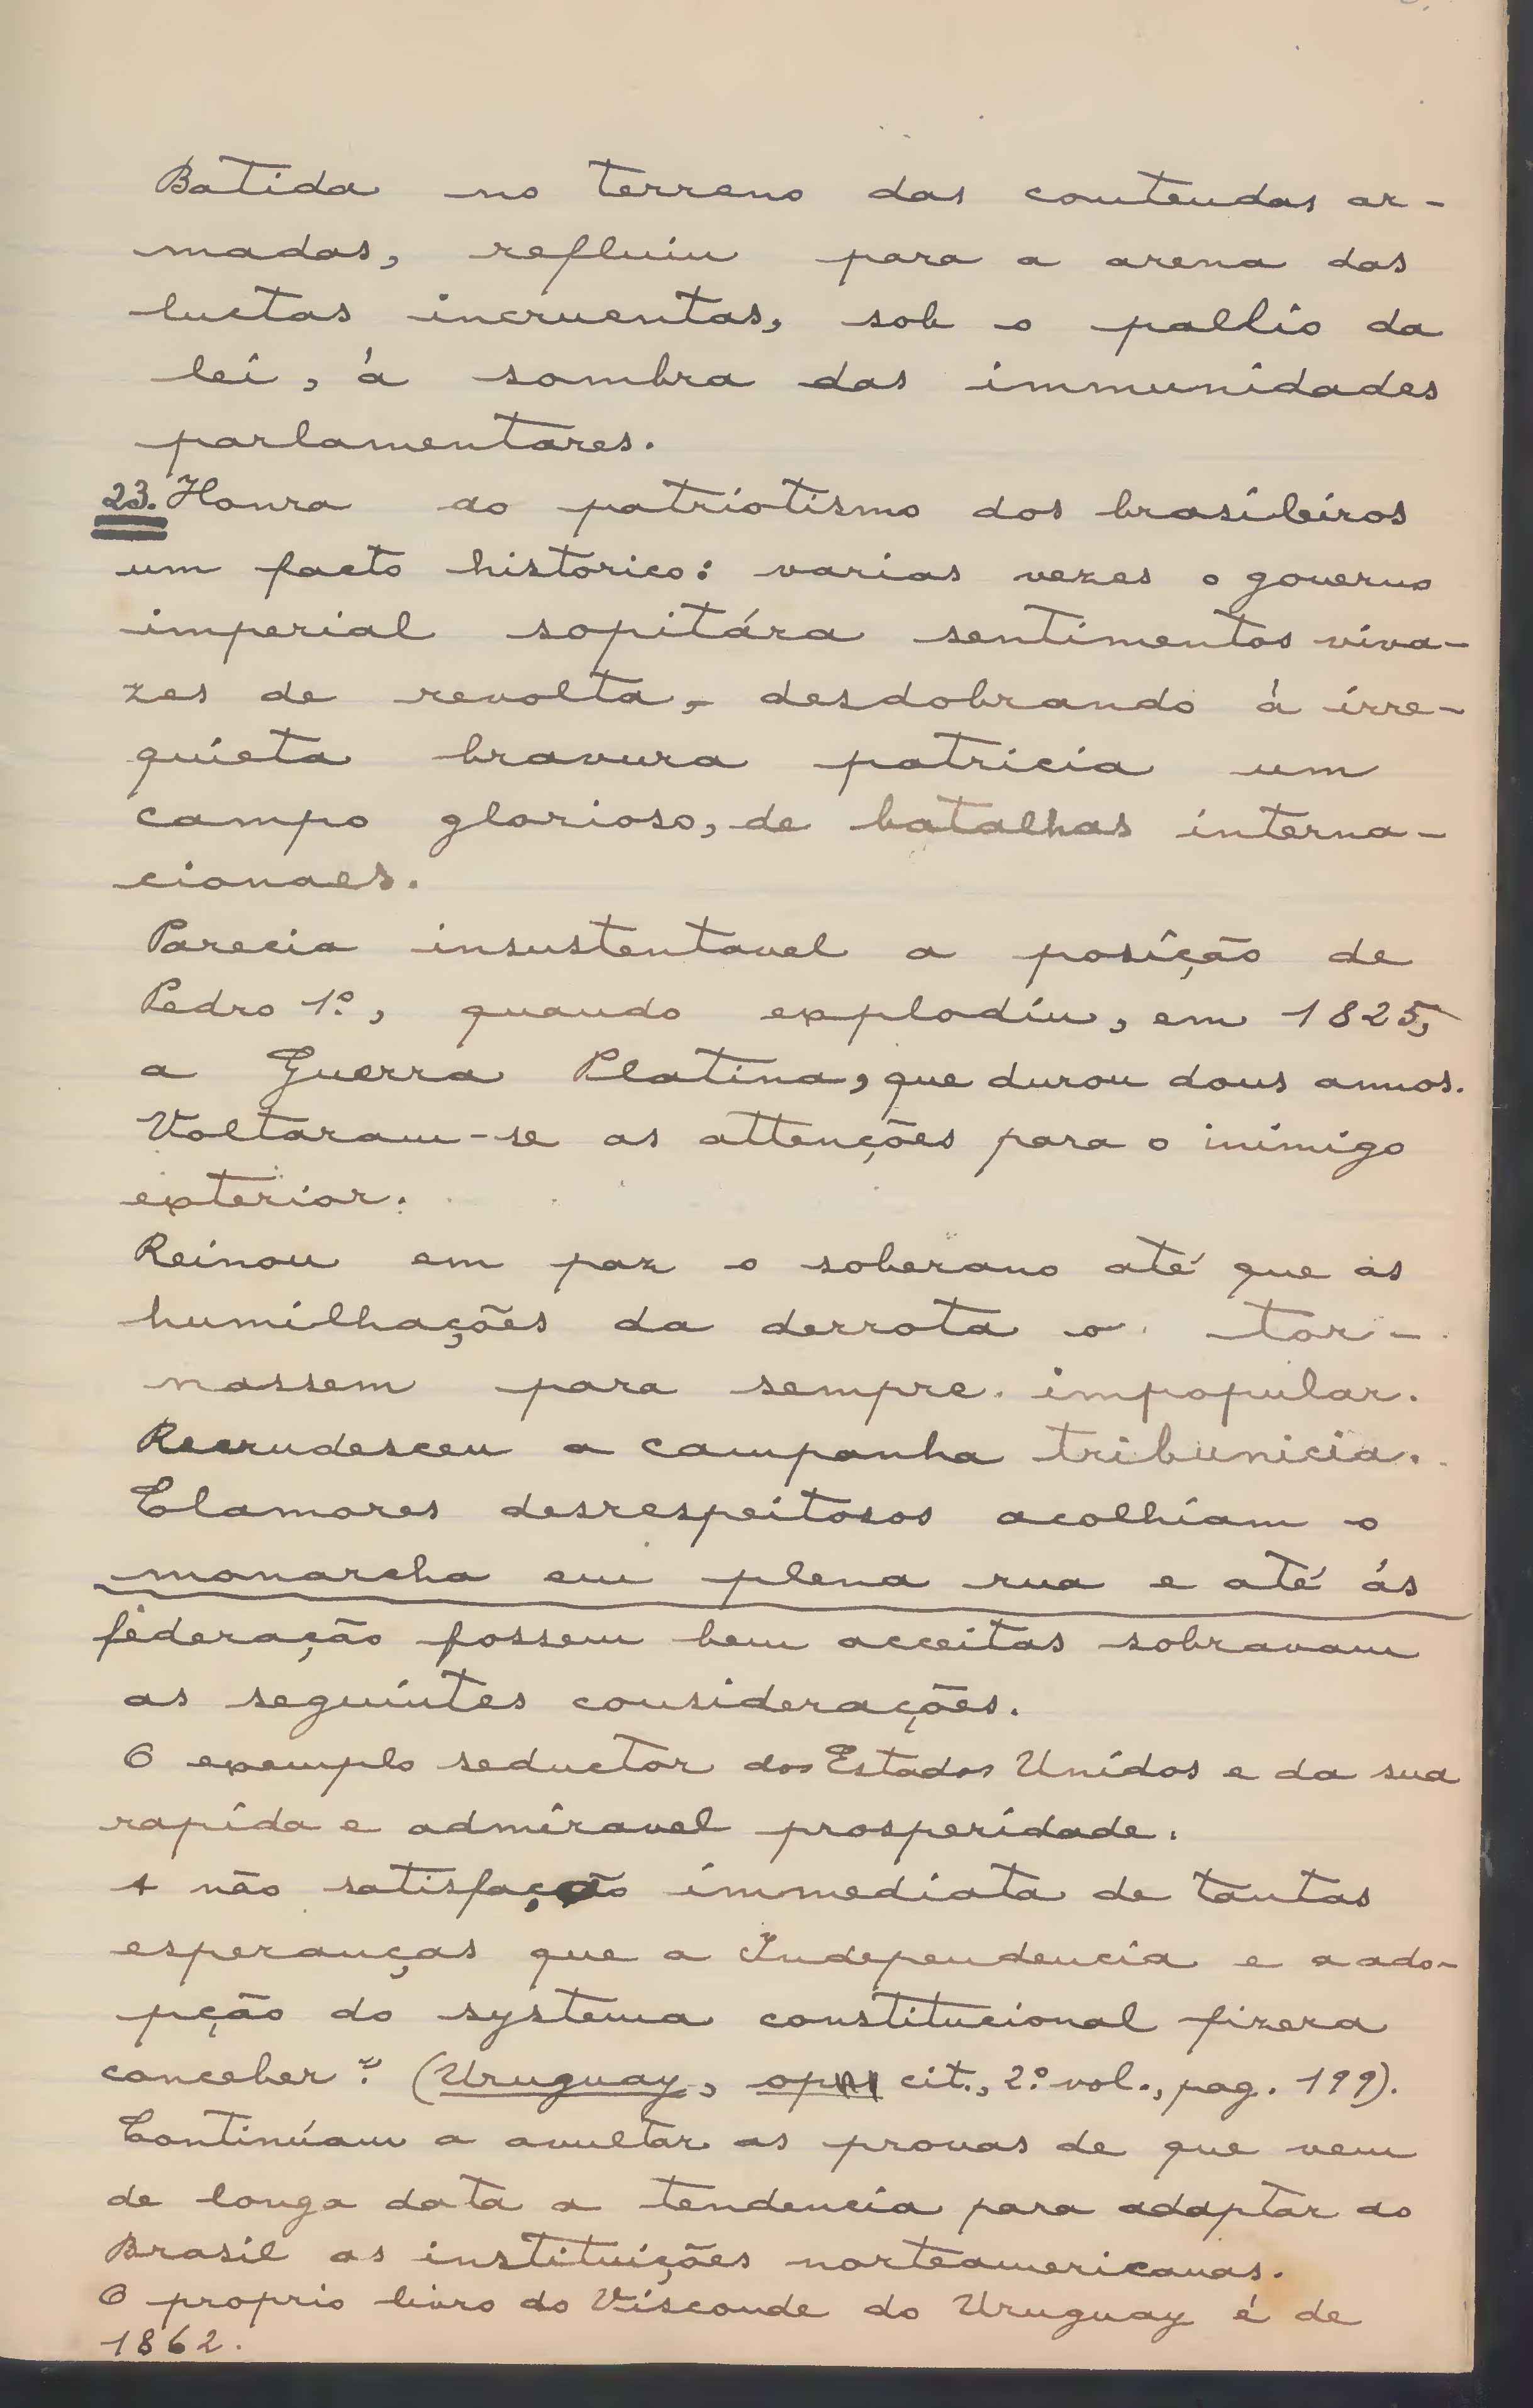 Batida no terreno das contendas ar-
madas, refluiu para a arena das
luctas incruentas, sob o pallio da
lei, á sombra das immunidades
parlamentares.
23. Honra ao patriotismo dos brasileiros
um facto historico: varias vezes o governo
imperial sopitára sentimentos viva-
zes de revolta, desdobrando á irre-
quieta bravura patricia um
campo glorioso, de batalhas interna-
cionaes.
Parecia insustentavel a posição de
Pedro 1º, quando explodiu, em 1825,
a Guerra Platina, que durou dous annos.
Voltaram-se as attenções para o inimigo
exterior.
Reinou em paz o soberano até que as
humilhações da derrota o tor-
nassem para sempre impopular.
Recrudesceu a campanha tribunicia.
Clamores desrespeitosos acolhiam o
monarcha em plena rua e até ás
federação fossem bem acceitas sobravam
as seguintes considerações.
O exemplo seductor dos Estados Unidos e da sua
rapida e admiravel prosperidade.
A não satisfação immediata de tantas
esperanças que a Independencia e a ado-
pção do systema constitucional fizera
conceber". (Uruguay, op. cit., 2º vol., pag. 199).
Continúam a avultar as provas de que vem
de longa data a tendencia para adaptar ao
Brasil as instituições norteamericanas.
O proprio livro do Visconde do Uruguay é de
1862.